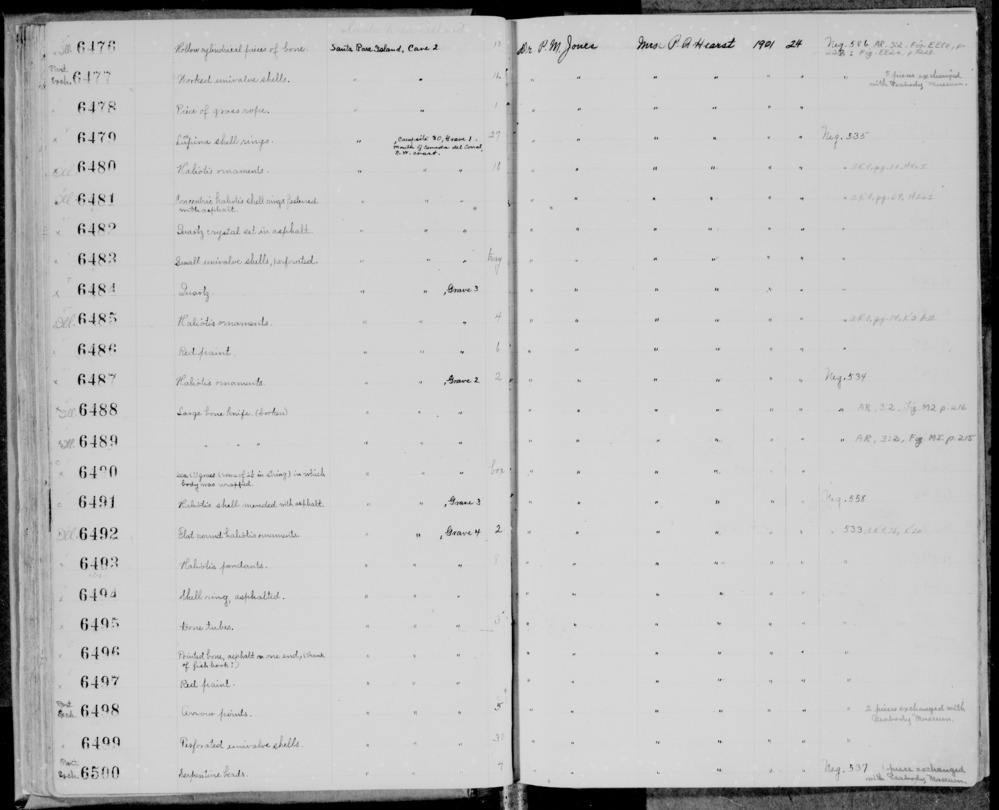 Santa Rosa Island
Ill. 6476 Hollow cylindrical pieces of bone. Santa Rosa Island, Cave 2 Dr. P. M. Jones Mrs. P. A. Hearst 1901 24 Neg. 586 AR. 32.
Part Exch. 6477 Worked univalve shells. " " " " " " 5 pieces exchanged
with Peabody Museum.
6478 Piece of grass rope. " " 1 " " " "
x 6479 shell rings. " Campsite 30, Grave 1 27 " " " " Neg. 535
mouth of Canada del Corral,
S. W. coast.
Ill. 6480 Haliotis ornaments. " " " 16 " " " "
Ill. 6481 Concentric haliotis shell rings fastened " " " " " " "
with asphalt.
x 6482 Quartz crystal set in asphalt. " " " " " " "
x 6483 Small univalve shells, perforated. " " " many " " " "
x 6484 Quartz. " " , Grave 3 " " " "
Ill. 6485 Haliotis ornaments. " " " 4 " " " "
6486 Red paint. " " " 6 " " " "
x 6487 Haliotis ornaments. " " , Grave 2 2 " " " " Neg. 534
Ill. 6488 Large bone knife. (broken) " " " " " " " " AR. 32. Fig. M2 p. 216
Ill. 6489 " " " " " " " " " " " AR. 32, Fig. M1. p. 215
6490 Sea (?) grass (some of it in string) in which " " " box " " " "
body was wrapped.
6491 Haliotis shell mended with asphalt. " " , Grave 3 " " " " Neg. 558
Ill. 6492 Flat round haliotis ornaments " " , Grave 4 2 " " " " " 533
6493 Haliotis pendants. " " " 8 " " " "
6494 Shell ring, asphalted. " " " " " " "
6495 Bone tubes. " " " 3 " " " "
6496 Pointed bone, asphalt on one end, (shank " " " " " " "
of fish hook?)
6497 Red paint. " " " " " " "
Part Exch. 6498 Arrow points. " " " 5 " " " " " 2 pieces exchanged with
Peabody Museum.
6499 Perforated univalve shells. " " " 30 " " " "
Part Exch. 6500 Serpentine beads. " " " 7 " " " " Neg. 537 1 piece exchanged
with Peabody Museum.